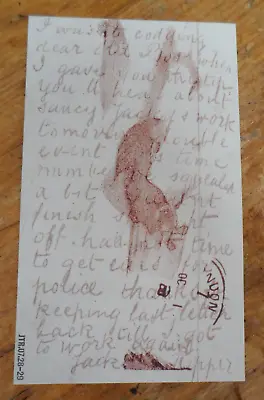 I was not codding
dear old Boss when
I gave you the tip
you'll hear about
saucy Jackys work
tomorrow double
event this time
number squealed
a bit
finish
off. had not time
to get
police thanks
keeping last letter
back till I got
to work again
Jack
LONDON
OC 1
JTR.07.28-29